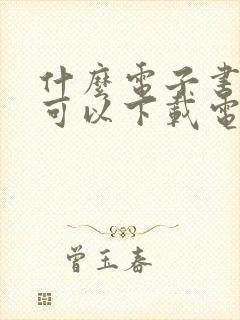 什麼電子書
可以下載電
曾玉春